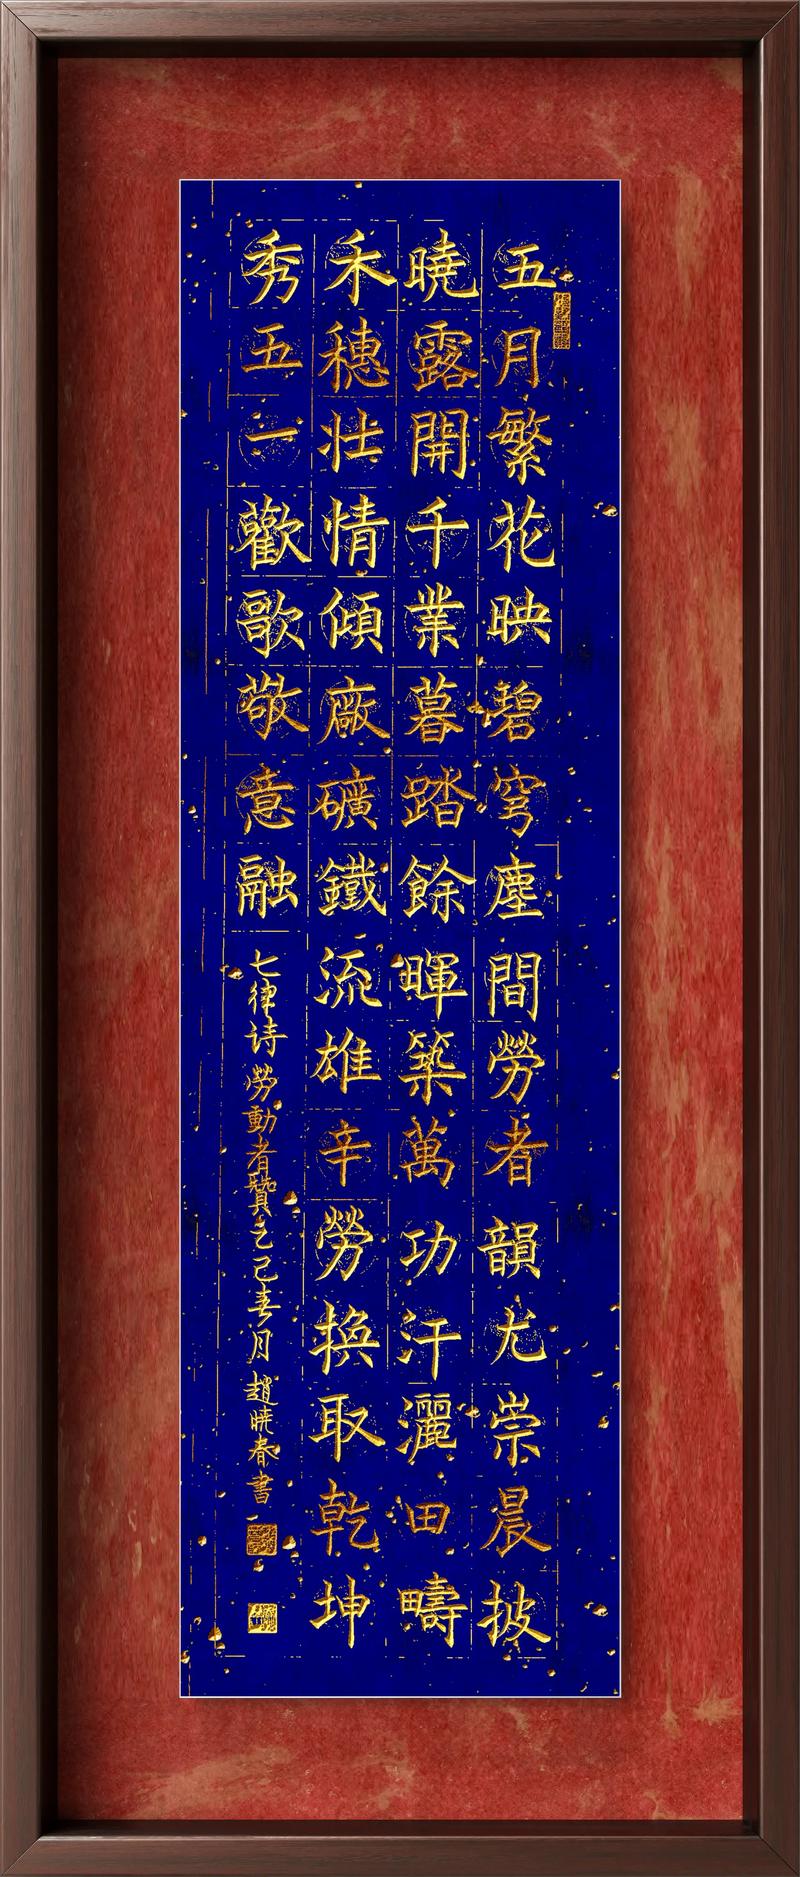 五月繁花映碧穹塵間勞者韻尤崇晨披
曉露開千業暮踏餘暉築萬功汗灑田疇
禾穗壯情傾廠礦鐵流雄辛勞換取乾坤
秀五一歡歌敬意融
七律诗勞動者贊乙巳春月趙曉春書